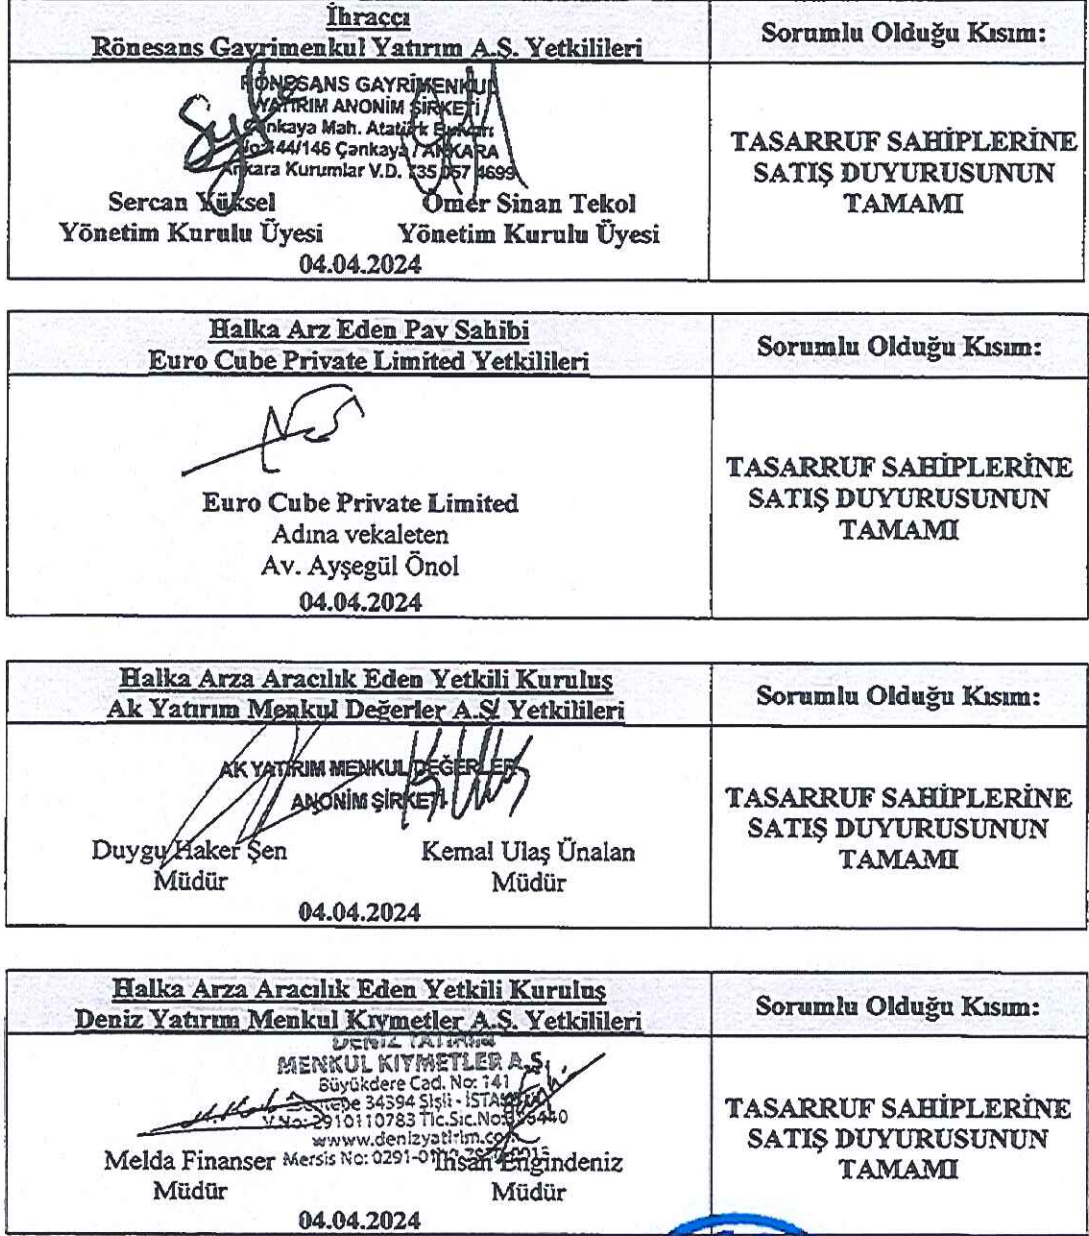 İhraççı
Rönesans Gayrimenkul Yatırım A.Ş. Yetkilileri
Sorumlu Olduğu Kısım:
RÖNESANS GAYRİMENKUL
YATIRIM ANONİM ŞİRKETİ
Çankaya Mah. Atatürk
No:144/146 Çankaya / ANKARA
Ankara Kurumlar V.D. 735 057 4699
Sercan Yüksel
Ömer Sinan Tekol
Yönetim Kurulu Üyesi
Yönetim Kurulu Üyesi
04.04.2024
TASARRUF SAHİPLERİNE
SATIŞ DUYURUSUNUN
TAMAMI
Halka Arz Eden Pay Sahibi
Euro Cube Private Limited Yetkilileri
Sorumlu Olduğu Kısım:
Euro Cube Private Limited
Adına vekaleten
Av. Ayşegül Önol
04.04.2024
TASARRUF SAHİPLERİNE
SATIŞ DUYURUSUNUN
TAMAMI
Halka Arza Aracılık Eden Yetkili Kuruluş
Ak Yatırım Menkul Değerler A.Ş. Yetkilileri
Sorumlu Olduğu Kısım:
AK YATIRIM MENKUL DEĞERLER
ANONİM ŞİRKETİ
Duygu Haker Şen
Kemal Ulaş Ünalan
Müdür
Müdür
04.04.2024
TASARRUF SAHİPLERİNE
SATIŞ DUYURUSUNUN
TAMAMI
Halka Arza Aracılık Eden Yetkili Kuruluş
Deniz Yatırım Menkul Kıymetler A.Ş. Yetkilileri
Sorumlu Olduğu Kısım:
DENİZ YATIRIM
MENKUL KIYMETLER A.Ş.
Büyükdere Cad. No: 141
34394 Şişli - İSTANBUL
V.No: 2910110783 Tic.Sic.No:
www.denizyatirim.com
Mersis No:
Melda Finanser
İhsan Engindeniz
Müdür
Müdür
04.04.2024
TASARRUF SAHİPLERİNE
SATIŞ DUYURUSUNUN
TAMAMI